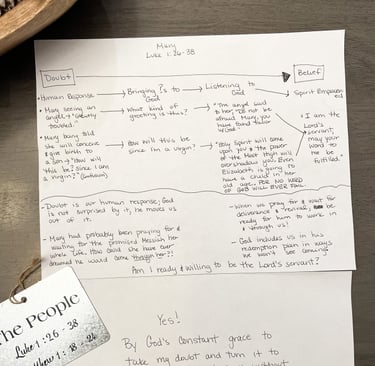 Mary
Luke 1:26-38
Doubt
Belief
Human Response
Bringing It to God
Listening to God
Spirit Empowered
Mary seeing an angel → "Greatly troubled."
What kind of greeting is this?
"The angel said to her, 'Do not be afraid Mary, you have found favor w/ God.'"
"I am the Lord's servant; may your word to me be fulfilled."
Mary being told she will conceive & give birth to a son → "How will this be? Since I am a virgin?"
How will this be since I'm a virgin?
"Holy Spirit will come upon you & the power of the Most High will overshadow you. Even Elizabeth is going to have a child in her old age. FOR NO WORD OF GOD WILL EVER FAIL."
- Doubt is our human response; God is not surprised by it, he moves us out of it.
- Mary had probably been praying for & waiting for the promised Messiah her whole life. How could she have ever dreamed he would come through her?!
- When we pray for & wait for deliverance & revival, be ready for him to work in & through us!
- God includes us in his redemption plan in ways we won't see coming
Am I ready & willing to be the Lord's servant?
The People
Luke 1:26-38
1:18-24
Yes!
By God's constant grace to
take my doubt and turn it to